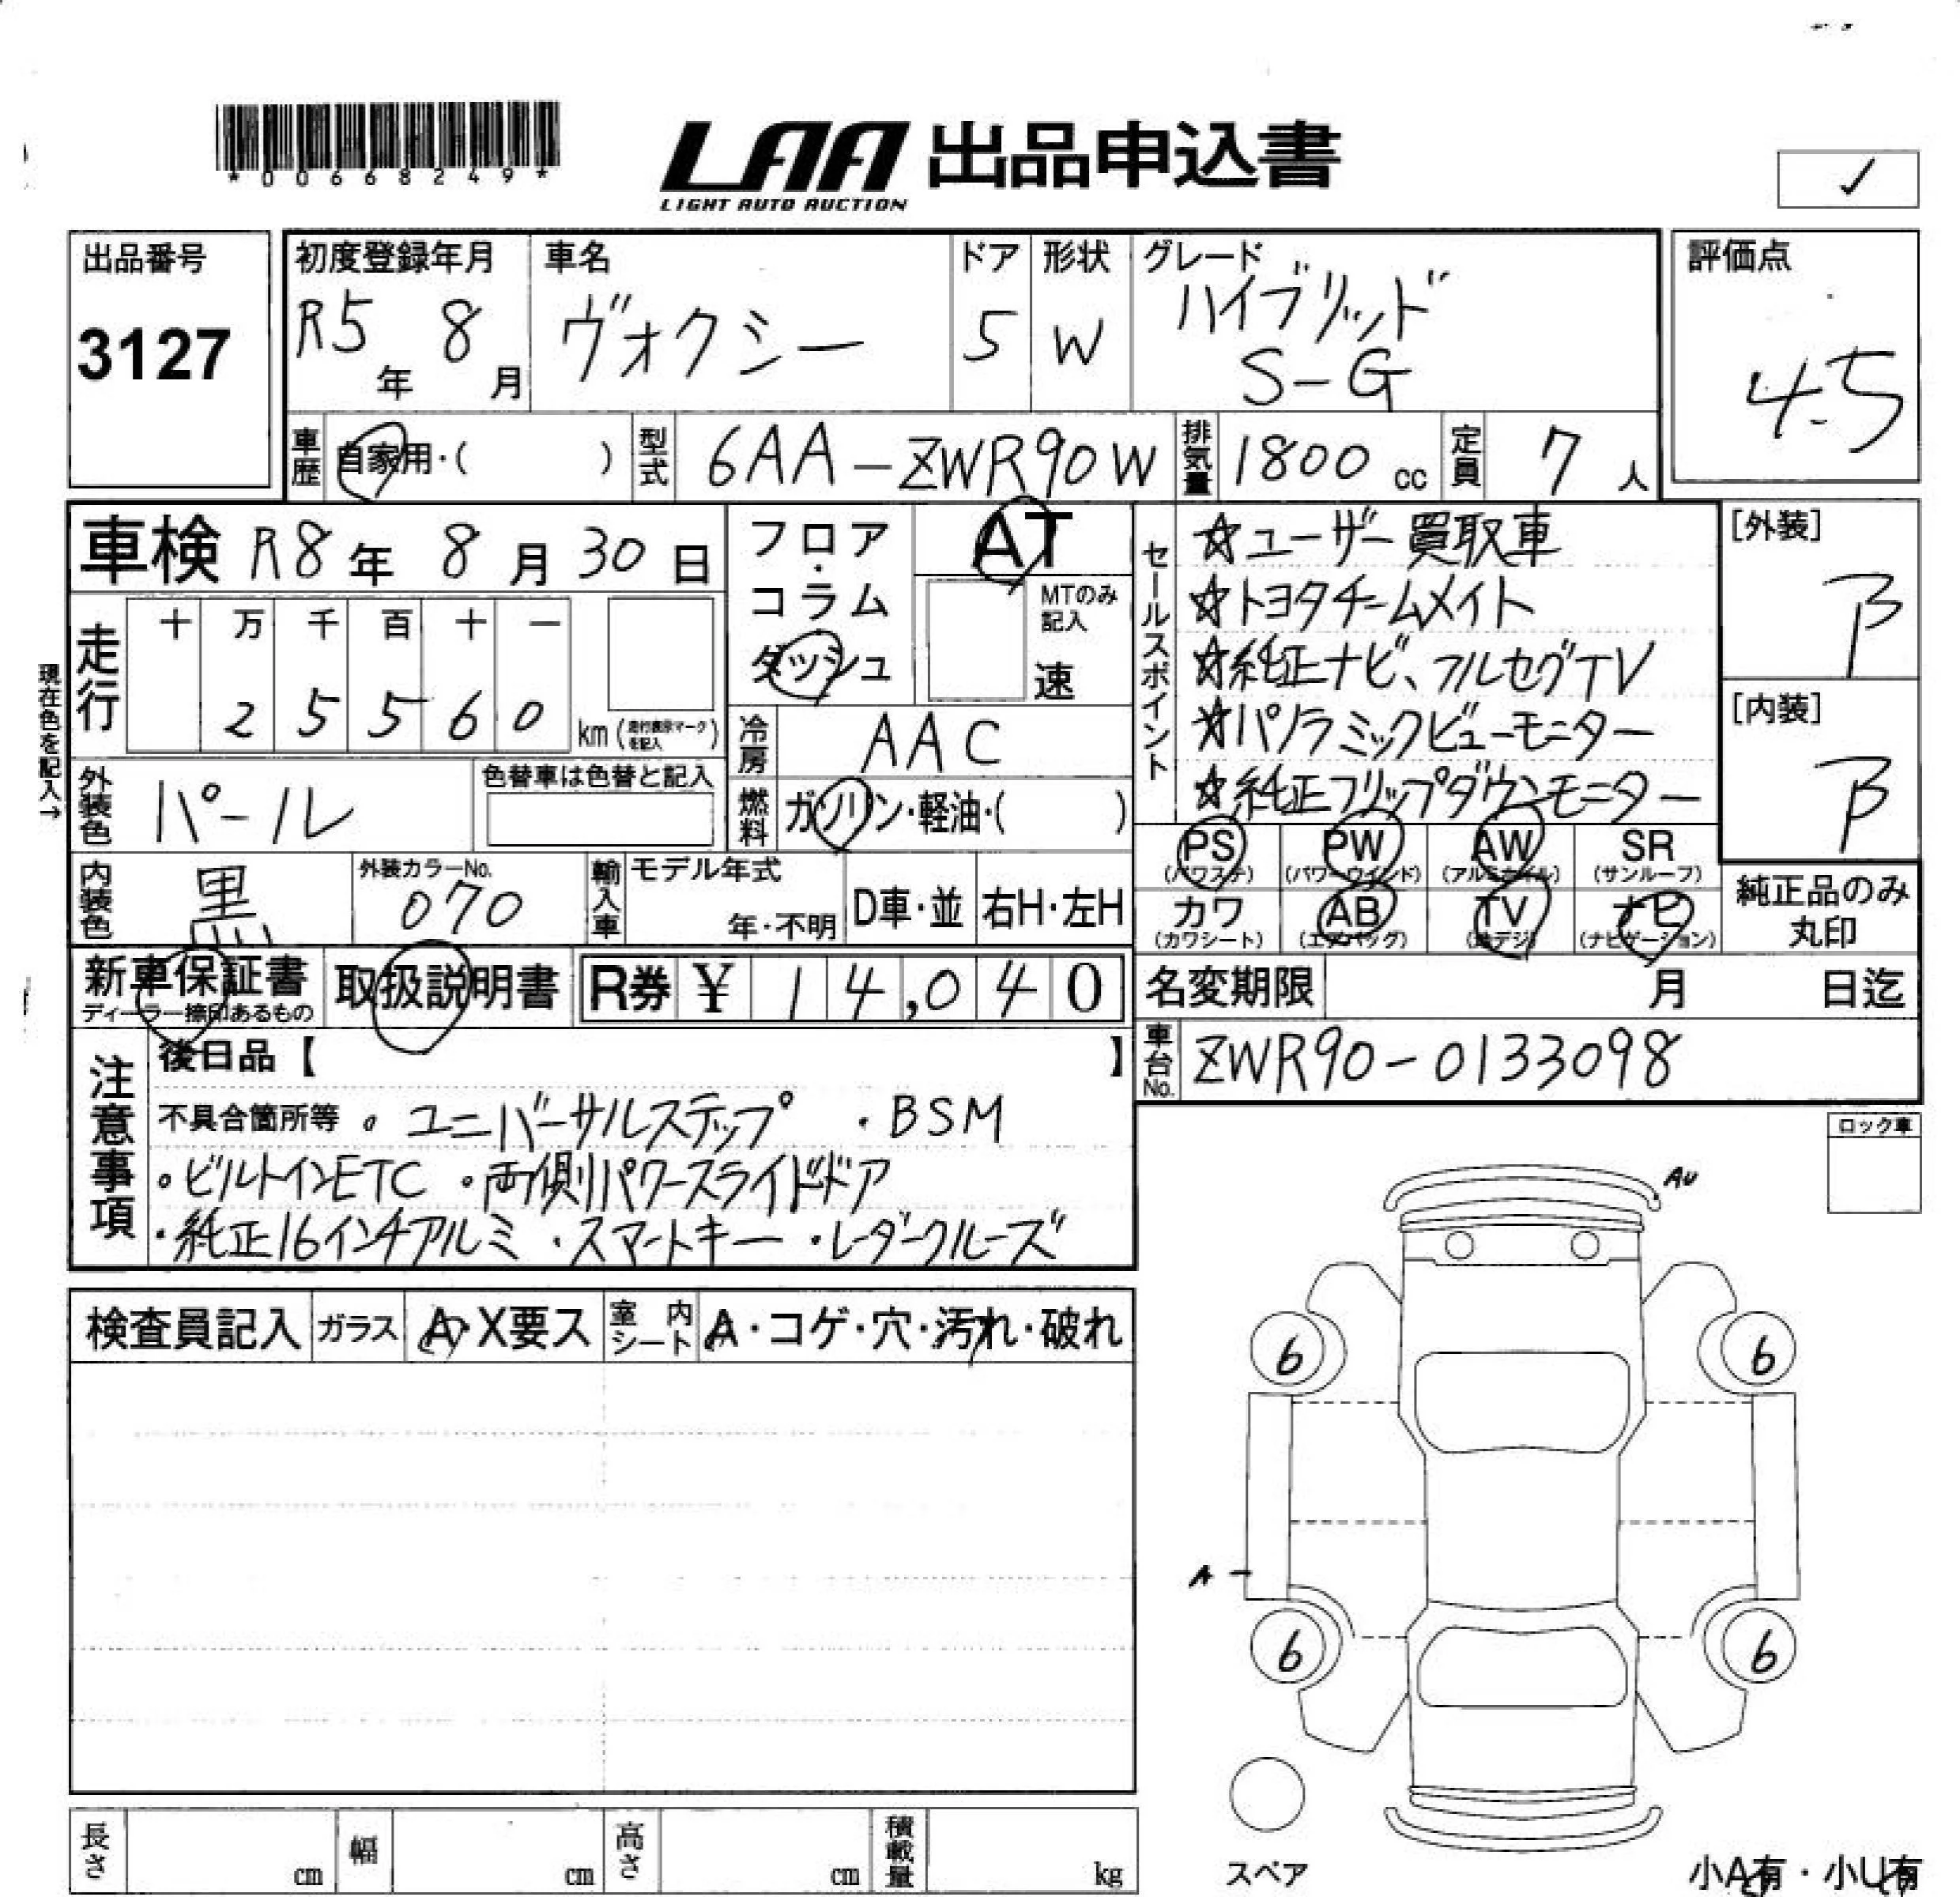 *00668249*
LAA 出品申込書
LIGHT AUTO AUCTION
✓
出品番号
3127
初度登録年月
R5年 8月
車名
ヴォクシー
ドア
5
形状
W
グレード
ハイブリッド
S-G
評価点
4.5
車歴 自家用・( )
型式 6AA-ZWR90W
排気量 1800 cc
定員 7人
車検 R8年 8月30日
フロア・コラム
ダッシュ
AT
MTのみ記入
速
セールスポイント
☆ユーザー買取車
☆トヨタチームメイト
☆純正ナビ、フルセグTV
☆パノラミックビューモニター
☆純正フリップダウンモニター
[外装]
B
[内装]
B
現在色を記入→
走行
十 万 千 百 十 一
2 5 5 6 0 km(走行表示マークを記入)
冷房 AAC
外装色 パール
色替車は色替と記入
燃料 ガソリン・軽油・( )
PS (パワステ)
PW (パワーウインド)
AW (アルミホイル)
SR (サンルーフ)
カワ (カワシート)
AB (エアバッグ)
TV (地デジ)
ナビ (ナビゲーション)
純正品のみ
丸印
内装色 黒
外装カラーNo.
070
輸入車 モデル年式
年・不明
D車・並
右H・左H
新車保証書
ディーラー捺印あるもの
取扱説明書
R券 ¥ 14,040
名変期限 月 日迄
車台No. ZWR90-0133098
注意事項
後日品【 】
不具合箇所等 。ユニバーサルステップ ・BSM
。ビルトインETC ・両側パワースライドドア
・純正16インチアルミ ・スマートキー ・レーダークルーズ
ロック車
検査員記入 ガラス A・X要ス 室内シート A・コゲ・穴・汚れ・破れ
AU
6 6
A
6 6
スペア
小A有・小U有
長さ cm 幅 cm 高さ cm 積載量 kg